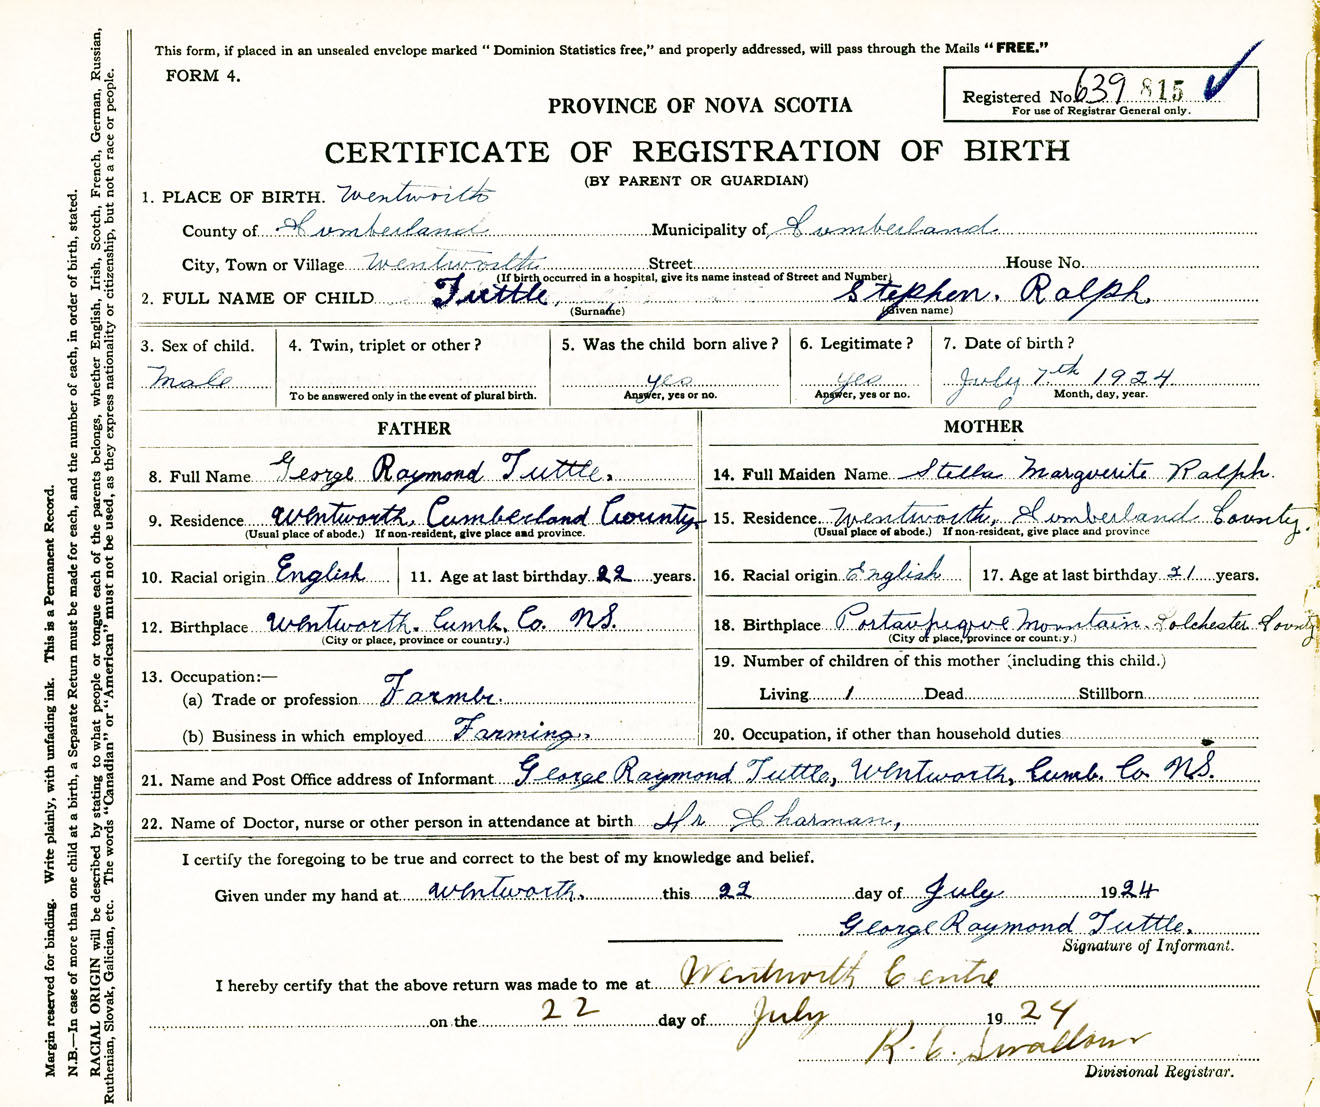 This form, if placed in an unsealed envelope marked " Dominion Statistics free," and properly addressed, will pass through the Mails "FREE."
FORM 4.
Registered No. 639 815
For use of Registrar General only.
PROVINCE OF NOVA SCOTIA
CERTIFICATE OF REGISTRATION OF BIRTH
(BY PARENT OR GUARDIAN)
1. PLACE OF BIRTH. Wentworth
County of Cumberland Municipality of Cumberland
City, Town or Village Wentworth Street House No.
(If birth occurred in a hospital, give its name instead of Street and Number)
2. FULL NAME OF CHILD Tuttle, Stephen. Ralph.
(Surname) (Given name)
3. Sex of child. 4. Twin, triplet or other? 5. Was the child born alive? 6. Legitimate? 7. Date of birth?
Male yes yes July 7th 1924
To be answered only in the event of plural birth. Answer, yes or no. Answer, yes or no. Month, day, year.
FATHER
8. Full Name George Raymond Tuttle.
9. Residence Wentworth. Cumberland County
(Usual place of abode.) If non-resident, give place and province.
10. Racial origin English 11. Age at last birthday 22 years.
12. Birthplace Wentworth. Cumb. Co. NS.
(City or place, province or country.)
13. Occupation:—
(a) Trade or profession Farmer.
(b) Business in which employed Farming.
MOTHER
14. Full Maiden Name Stella Marguerite Ralph.
15. Residence Wentworth, Cumberland County.
(Usual place of abode.) If non-resident, give place and province
16. Racial origin English 17. Age at last birthday 21 years.
18. Birthplace Portaupique Mountain. Colchester County
(City or place, province or country.)
19. Number of children of this mother (including this child.)
Living 1 Dead Stillborn
20. Occupation, if other than household duties
21. Name and Post Office address of Informant George Raymond Tuttle, Wentworth, Cumb. Co. NS.
22. Name of Doctor, nurse or other person in attendance at birth Dr Charman,
I certify the foregoing to be true and correct to the best of my knowledge and belief.
Given under my hand at Wentworth. this 22 day of July 1924
George Raymond Tuttle.
Signature of Informant.
I hereby certify that the above return was made to me at Wentworth Centre
on the 22 day of July 1924
R. C. Swallow
Divisional Registrar.
Margin reserved for binding. Write plainly, with unfading ink. This is a Permanent Record.
N.B.—In case of more than one child at a birth, a Separate Return must be made for each, and the number of each, in order of birth, stated.
RACIAL ORIGIN will be described by stating to what people or tongue each of the parents belongs, whether English, Irish, Scotch, French, German, Russian,
Ruthenian, Slovak, Galician, etc. The words "Canadian" or "American" must not be used, as they express nationality or citizenship, but not a race or people.